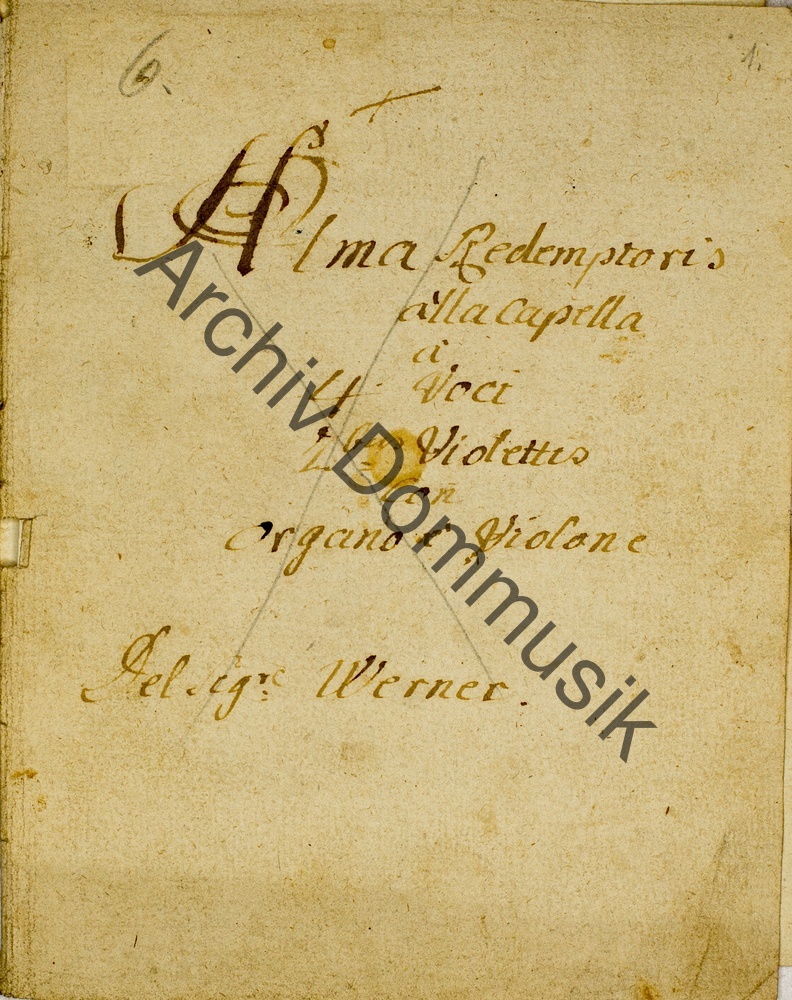 6.
1.
Alma Redemptoris
alla Capella
à
4 Voci
2bus Violettis
Con
Organo è Violone
Del Sigre Werner.
Archiv Dommusik